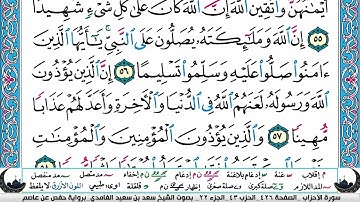 أَيْمَٰنُهُنَّ وَٱتَّقِينَ ٱللَّهَ إِنَّ ٱللَّهَ كَانَ عَلَىٰ كُلِّ شَىْءٍ شَهِيدًا
٥٥ إِنَّ ٱللَّهَ وَمَلَٰٓئِكَتَهُۥ يُصَلُّونَ عَلَى ٱلنَّبِىِّ يَٰٓأَيُّهَا ٱلَّذِينَ
ءَامَنُوا۟ صَلُّوا۟ عَلَيْهِ وَسَلِّمُوا۟ تَسْلِيمًا ٥٦ إِنَّ ٱلَّذِينَ يُؤْذُونَ
ٱللَّهَ وَرَسُولَهُۥ لَعَنَهُمُ ٱللَّهُ فِى ٱلدُّنْيَا وَٱلْءَاخِرَةِ وَأَعَدَّ لَهُمْ عَذَابًا
مُّهِينًا ٥٧ وَٱلَّذِينَ يُؤْذُونَ ٱلْمُؤْمِنِينَ وَٱلْمُؤْمِنَٰتِ
سورة الأحزاب الصفحة ٤٢٦ الحزب ٤٣ الجزء ٢٢ بصوت الشيخ سعد بن سعيد الغامدي برواية حفص عن عاصم